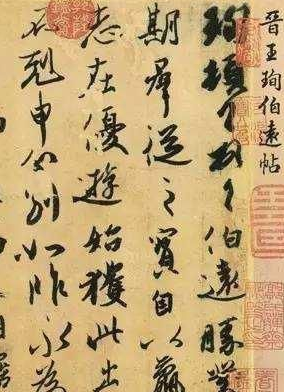 晉王珣伯遠帖
珣頓首頓首伯遠勝業
期羣從之寶自以羸
志在優遊始獲此出
不剋申分別如昨永為